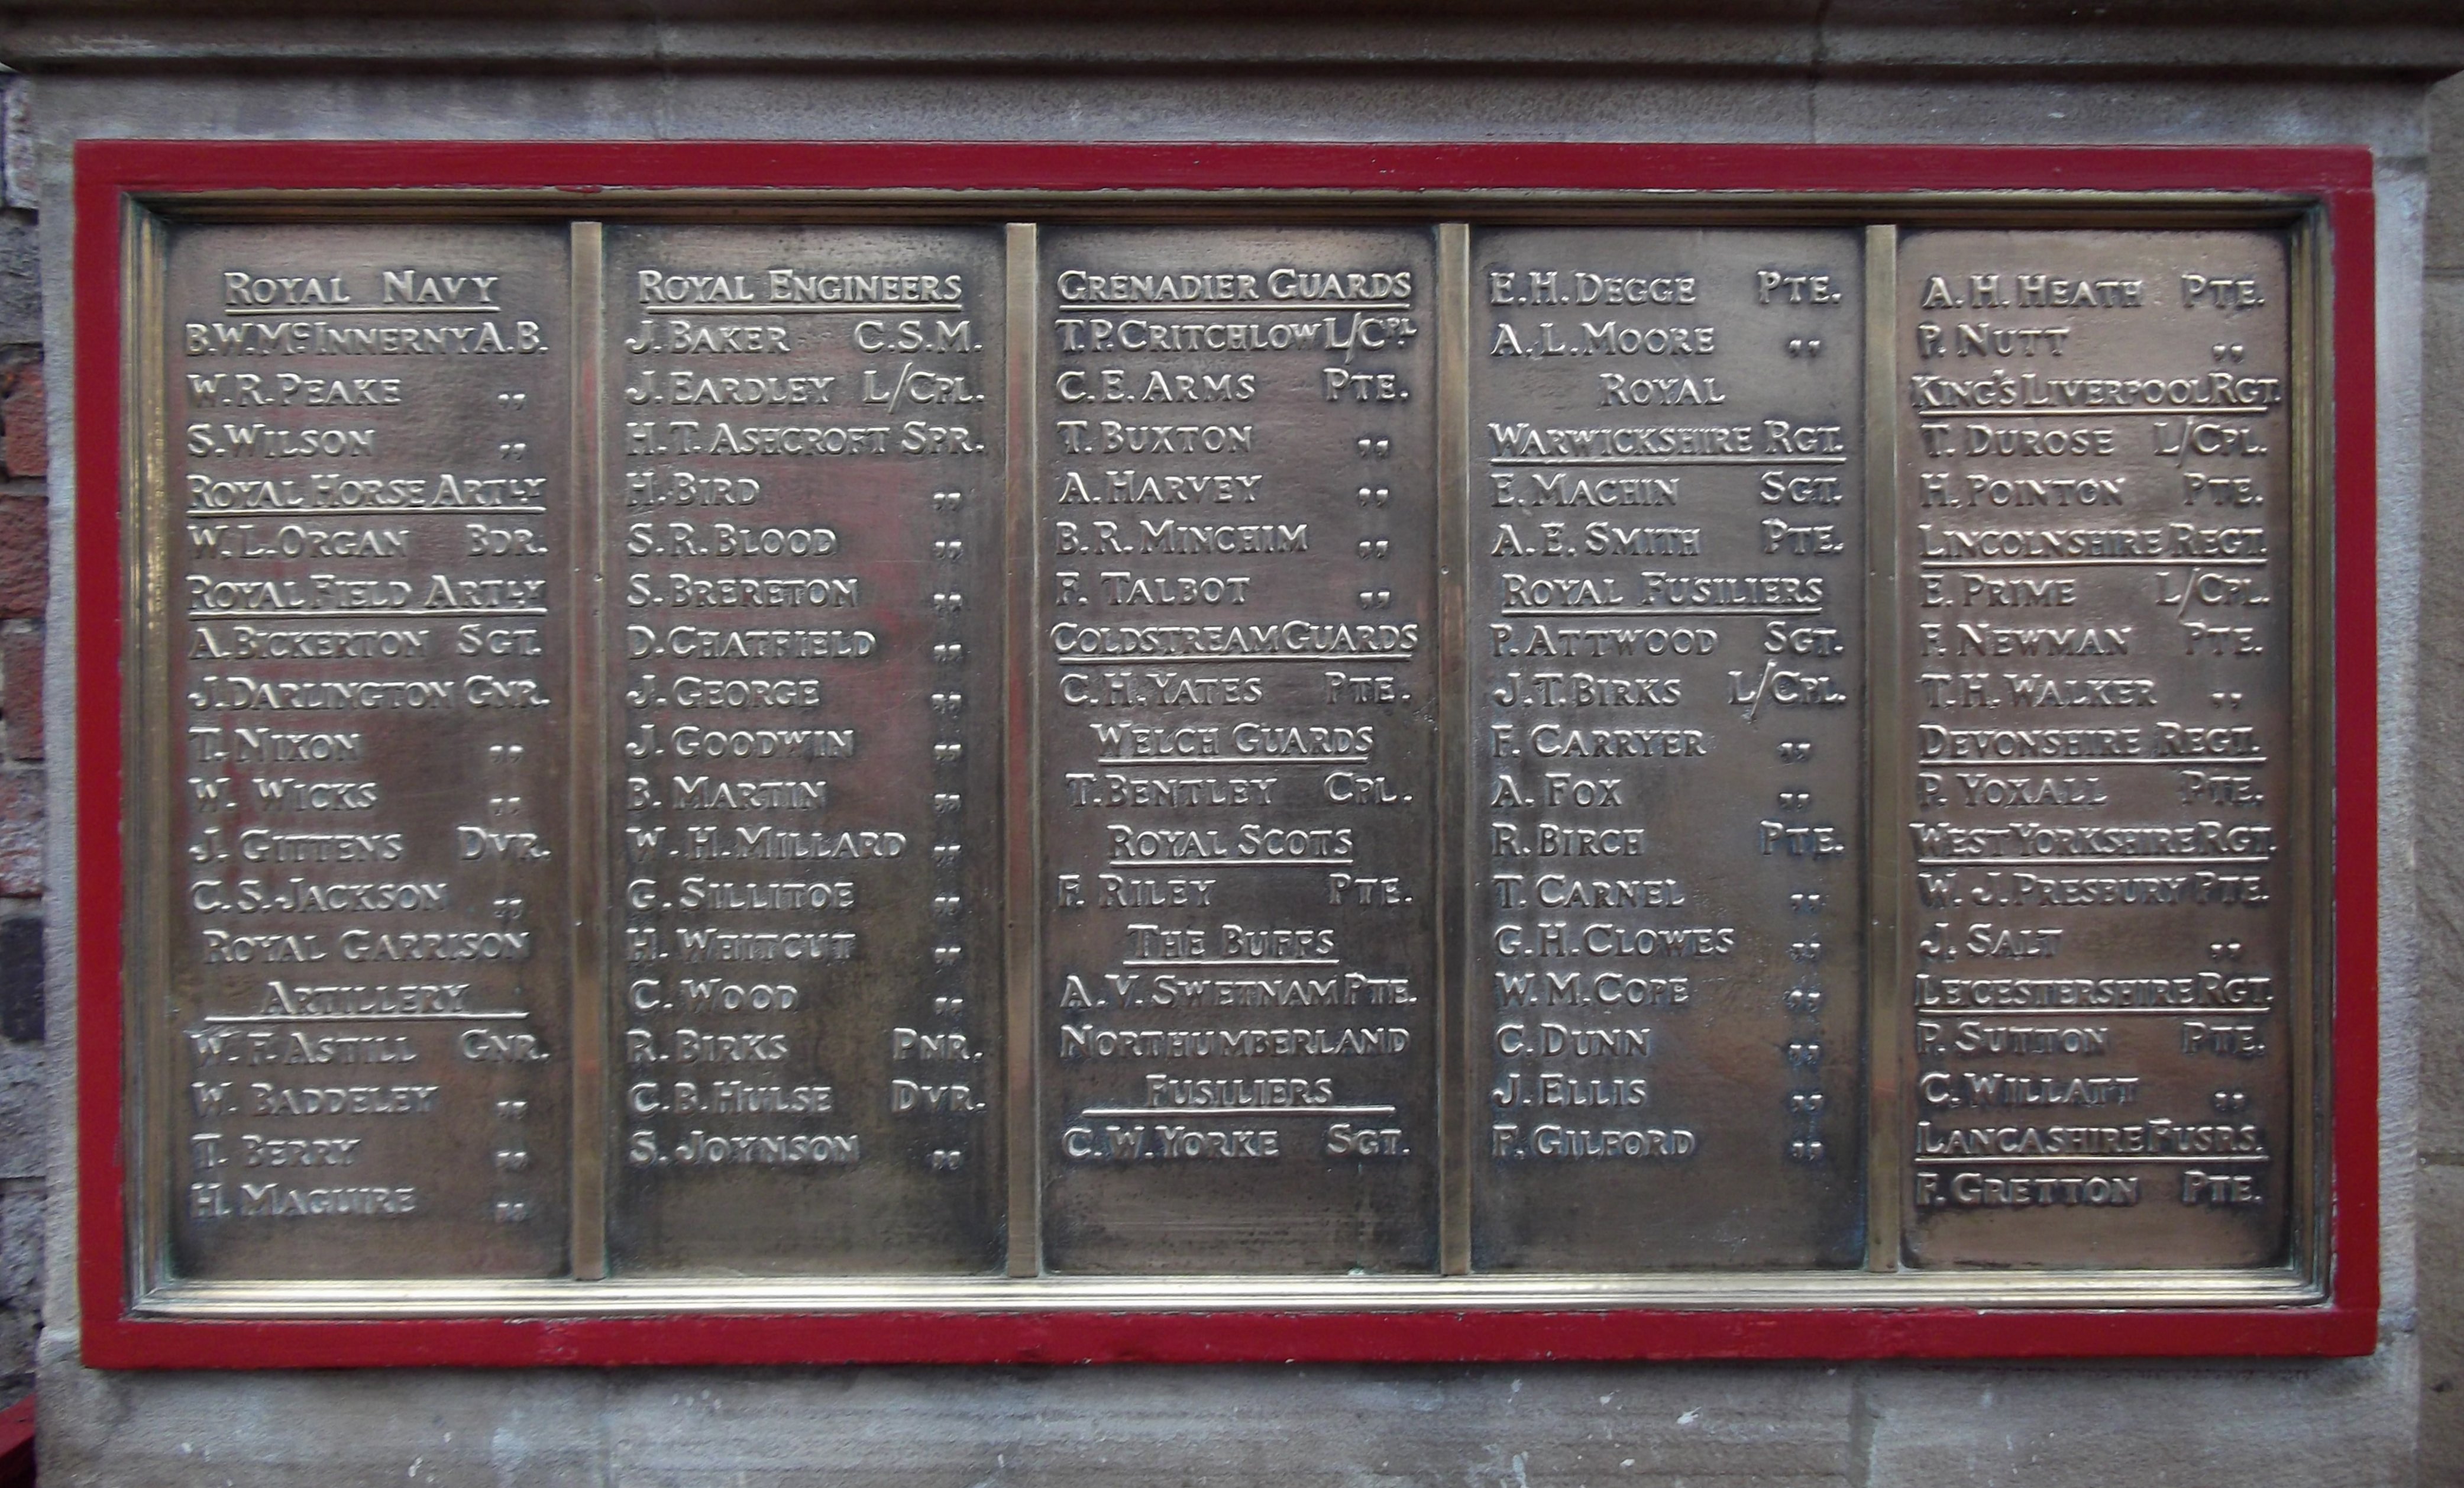 ROYAL NAVY
B.W. McINNERNY A.B.
W.R. PEAKE ,,
S. WILSON ,,
ROYAL HORSE ARTLY
W.L. ORGAN BDR.
ROYAL FIELD ARTLY
A. BICKERTON SGT.
J. DARLINGTON GNR.
T. NIXON ,,
W. WICKS ,,
J. GITTENS DVR.
C.S. JACKSON ,,
ROYAL GARRISON
ARTILLERY
W.F. ASTILL GNR.
W. BADDELEY ,,
T. BERRY ,,
H. MAGUIRE ,,
ROYAL ENGINEERS
J. BAKER C.S.M.
J. EARDLEY L/CPL.
H.T. ASHCROFT SPR.
H. BIRD ,,
S.R. BLOOD ,,
S. BRERETON ,,
D. CHATFIELD ,,
J. GEORGE ,,
J. GOODWIN ,,
B. MARTIN ,,
W.H. MILLARD ,,
G. SILLITOE ,,
H. WHITCUT ,,
C. WOOD ,,
R. BIRKS PNR.
C.B. HULSE DVR.
S. JOYNSON ,,
GRENADIER GUARDS
T.P. CRITCHLOW L/CPL
C.E. ARMS PTE.
T. BUXTON ,,
A. HARVEY ,,
B.R. MINCHIM ,,
F. TALBOT ,,
COLDSTREAM GUARDS
C.H. YATES PTE.
WELCH GUARDS
T. BENTLEY CPL.
ROYAL SCOTS
F. RILEY PTE.
THE BUFFS
A.V. SWETNAM PTE.
NORTHUMBERLAND
FUSILIERS
C.W. YORKE SGT.
E.H. DEGGE PTE.
A.L. MOORE ,,
ROYAL
WARWICKSHIRE RGT.
E. MACHIN SGT.
A.E. SMITH PTE.
ROYAL FUSILIERS
P. ATTWOOD SGT.
J.T. BIRKS L/CPL.
F. CARRYER ,,
A. FOX ,,
R. BIRCH PTE.
T. CARNEL ,,
G.H. CLOWES ,,
W.M. COPE ,,
C. DUNN ,,
J. ELLIS ,,
F. GILFORD ,,
A.H. HEATH PTE.
P. NUTT ,,
KING'S LIVERPOOL RGT.
T. DUROSE L/CPL.
H. POINTON PTE.
LINCOLNSHIRE REGT.
E. PRIME L/CPL.
F. NEWMAN PTE.
T.H. WALKER ,,
DEVONSHIRE REGT.
P. YOXALL PTE.
WEST YORKSHIRE RGT.
W.J. PRESBURY PTE.
J. SALT ,,
LEICESTERSHIRE RGT.
P. SUTTON PTE.
C. WILLATT ,,
LANCASHIRE FUSRS.
F. GRETTON PTE.